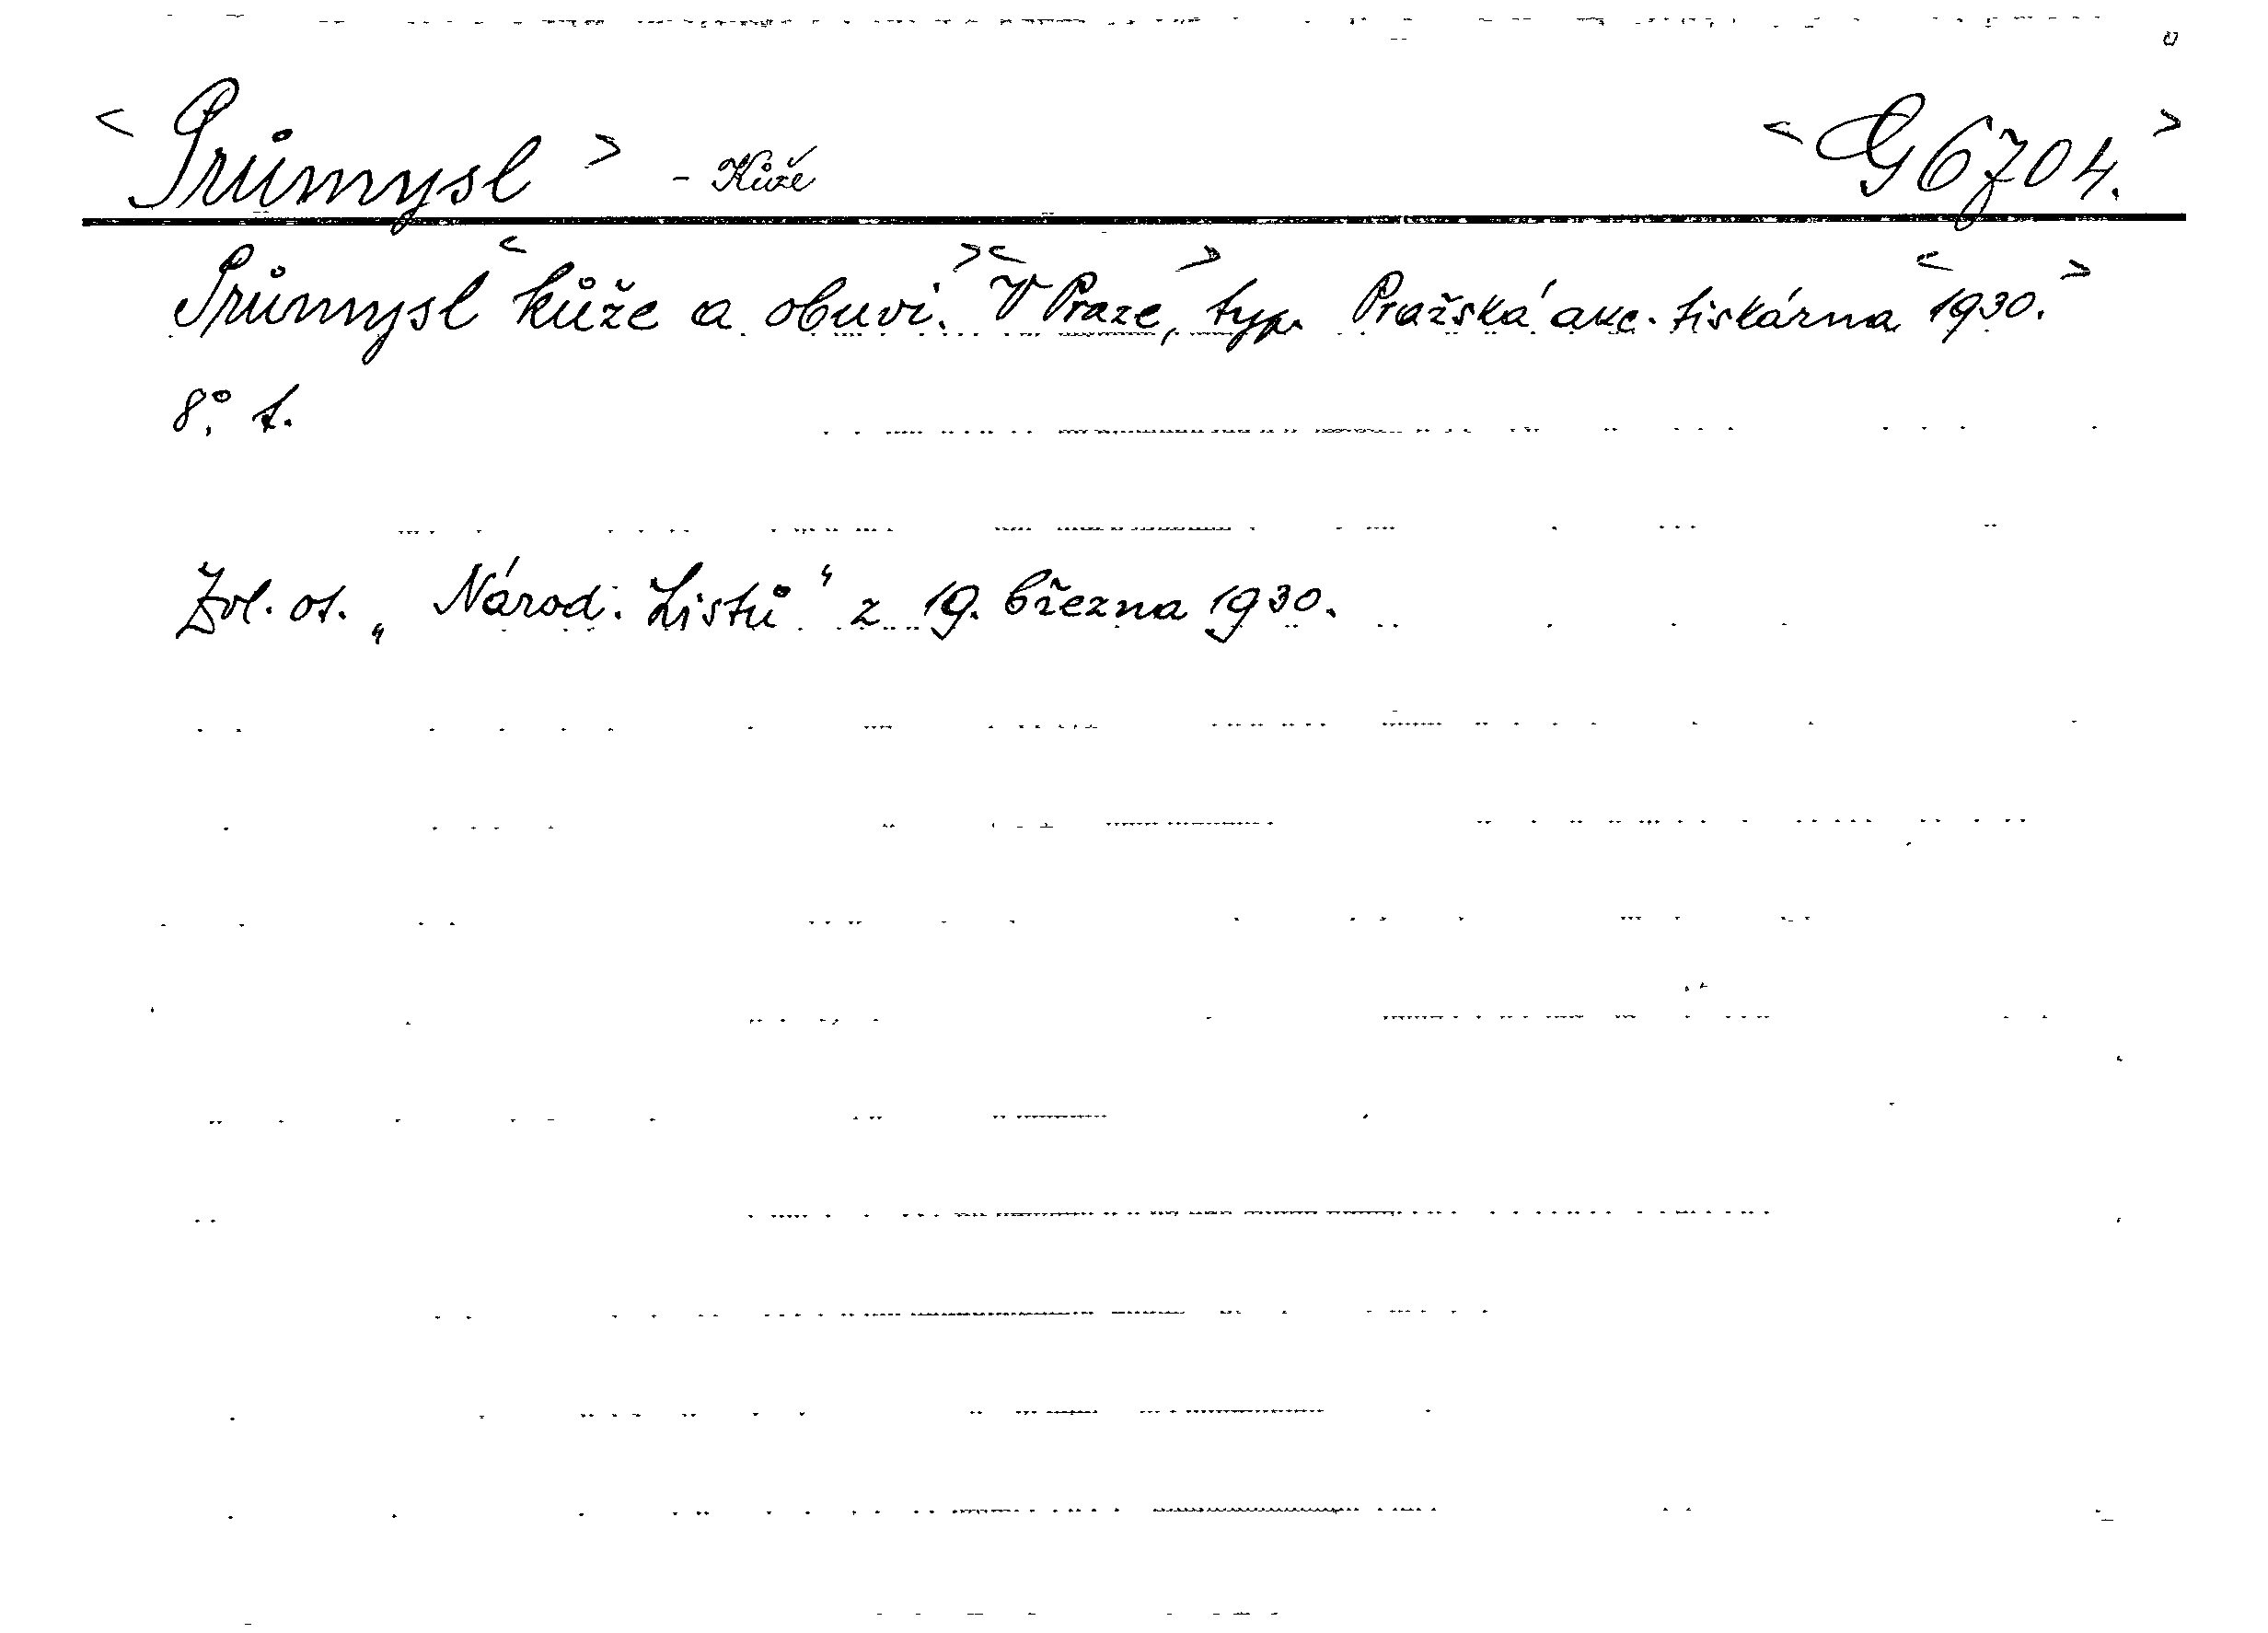 < Průmysl > - Kůže < G 6704. >
Průmysl < kůže a obuvi. > < V Praze, > typ. Pražská akc. tiskárna < 1930. >
8.° t.
Zvl. ot. „Národ. Listů“ z 19. března 1930.